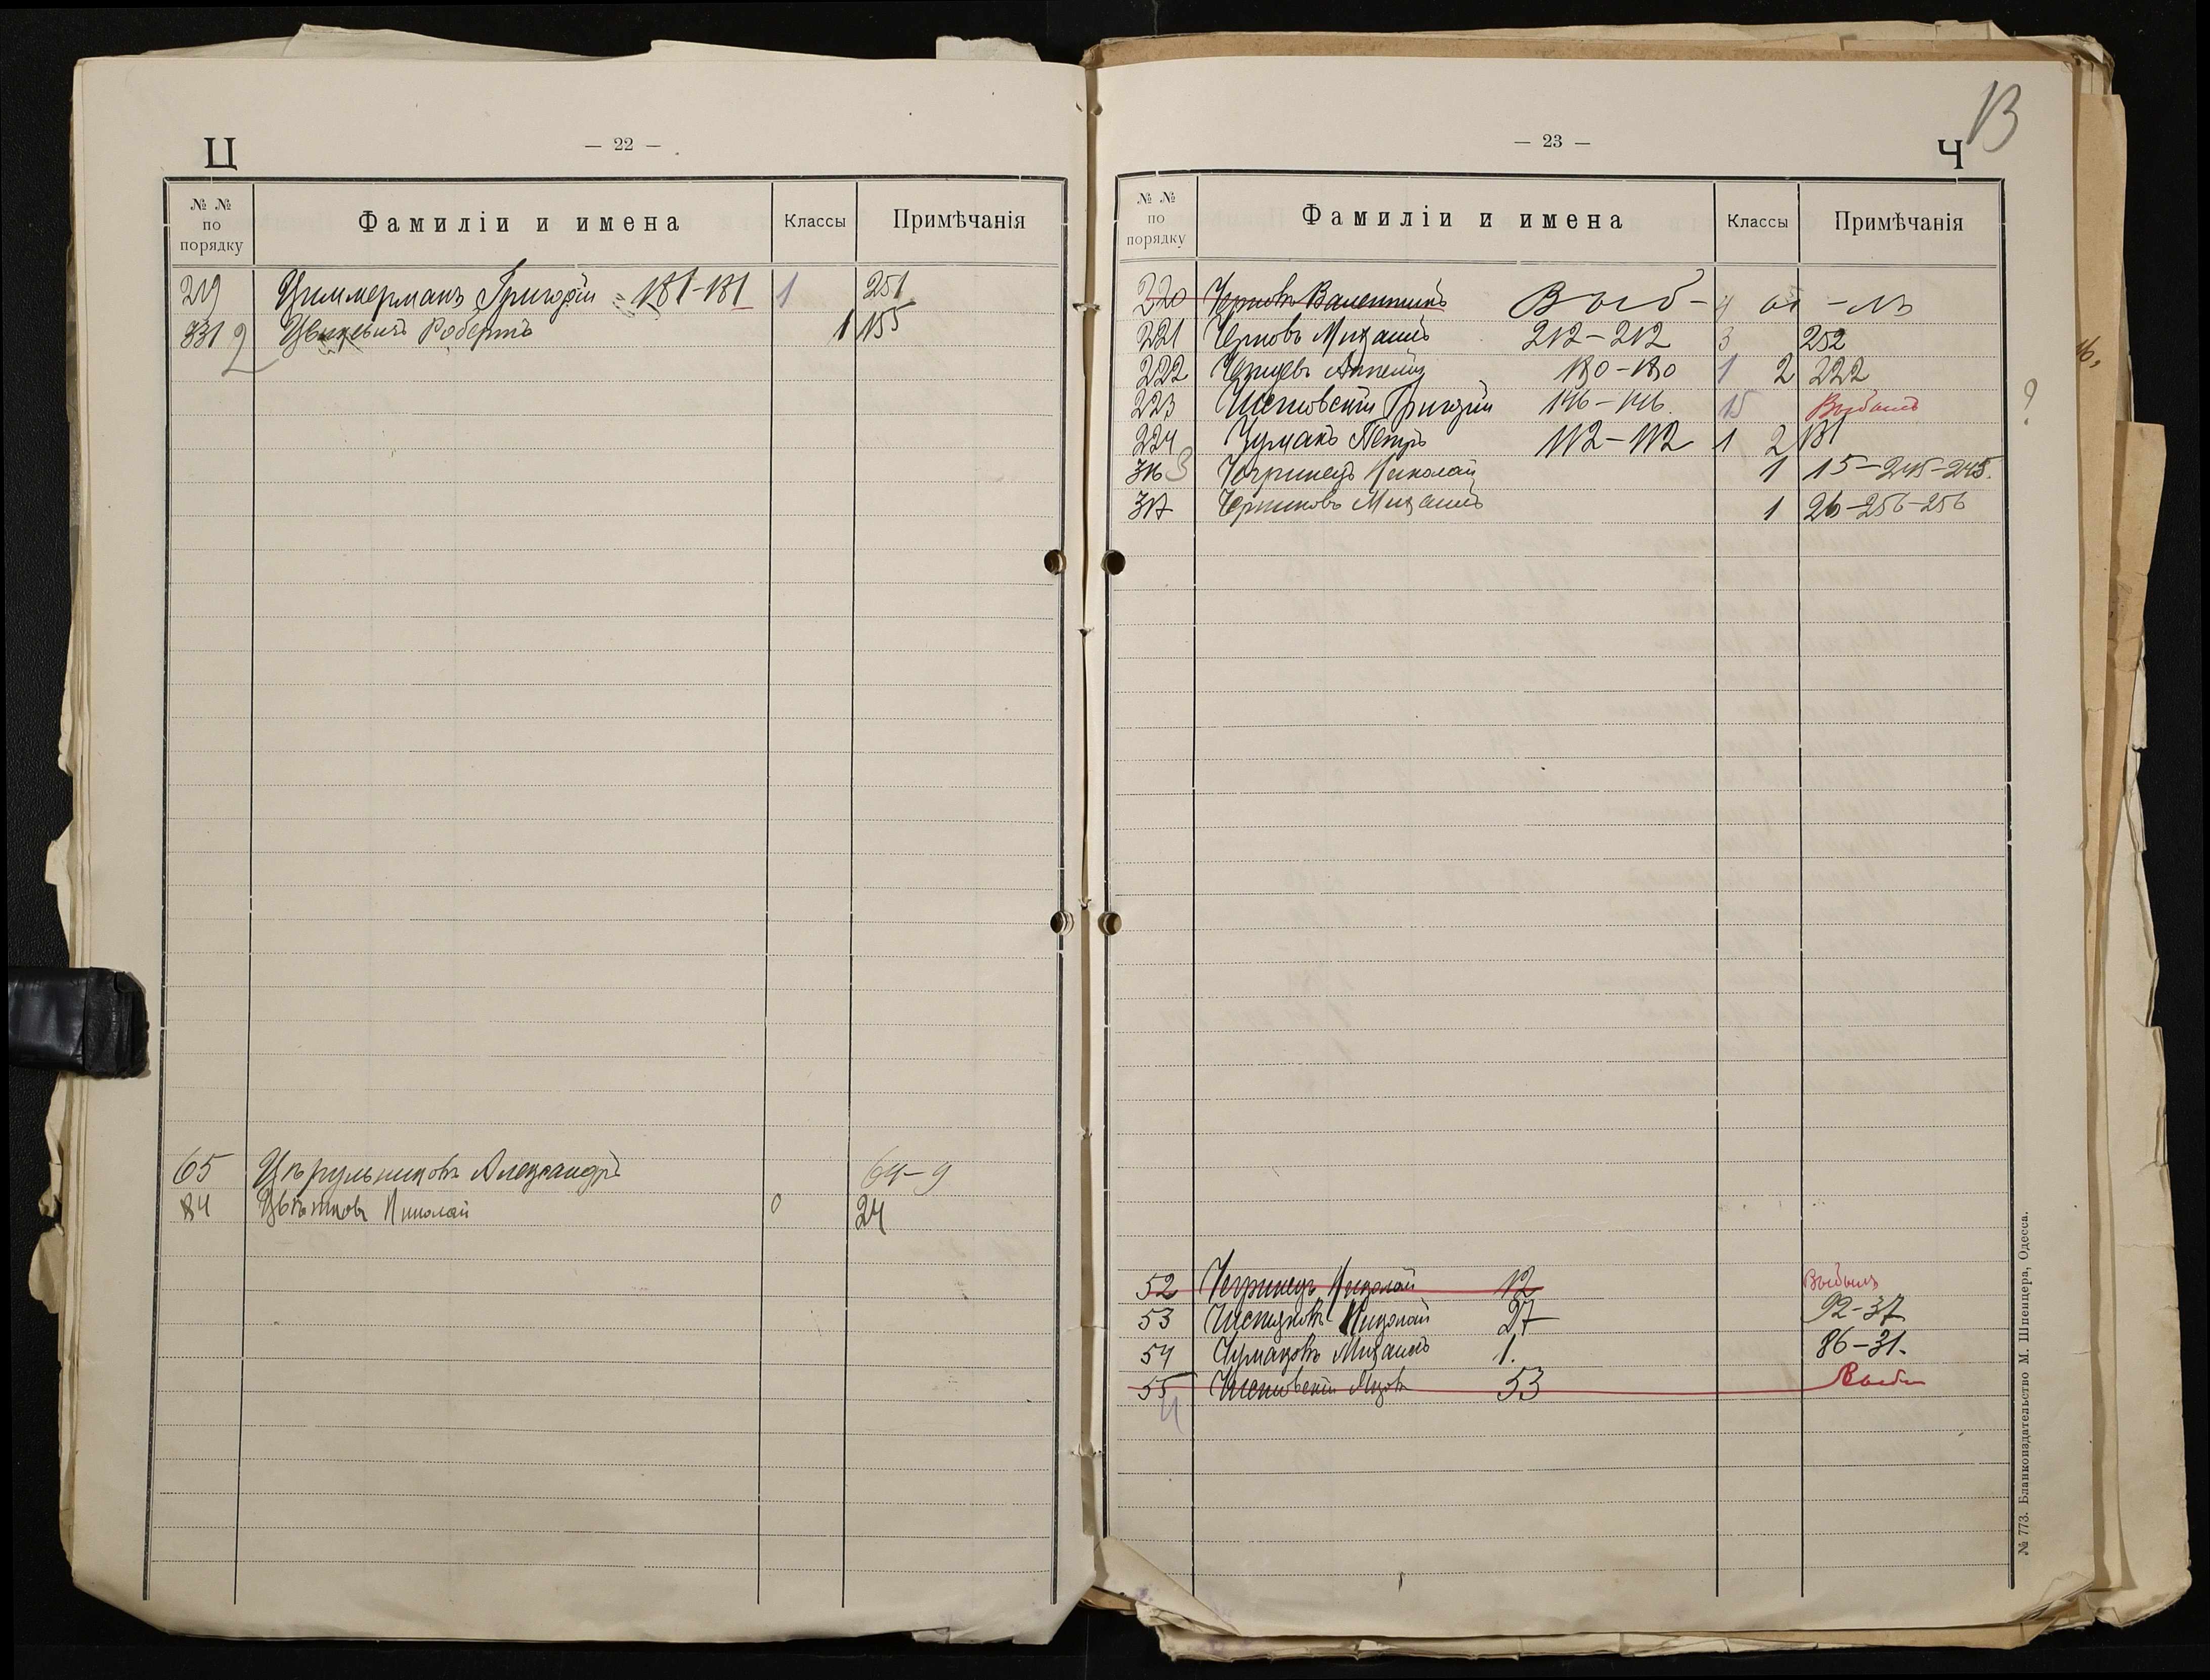 Ц
— 22 —
№ № по порядку Фамиліи и имена Классы Примѣчанія
219 Циммерманъ Григорій 181-181 1 251
331 Цвикевичъ Робертъ 1 155
2
65 Цырульниковъ Александръ 64-9
84 Цвѣтковъ Николай 0 24
13
— 23 —
Ч
№ № по порядку Фамиліи и имена Классы Примѣчанія
220 Черновъ Валентинъ Выб-
221 Черновъ Михаилъ 212-212 3 252
222 180-180 1 2 222
223 Чистовскій Григорій 146-146. 15 Выбылъ
224 Чумакъ Петръ 112-112 1 2 131
316 Чегринецъ Николай 1 15-245-245.
3
317 Черниковъ Михаилъ 1 26-256-256
?
52 Чегринецъ Николай 12 Выбылъ
53 Чистяковъ Николай 27 92-37
54 Чумаковъ Михаилъ 1. 86-31.
55 Чистовскій Яковъ 53 Выбы
4
№ 773. Бланкоиздательство М. Шпенцера, Одесса.